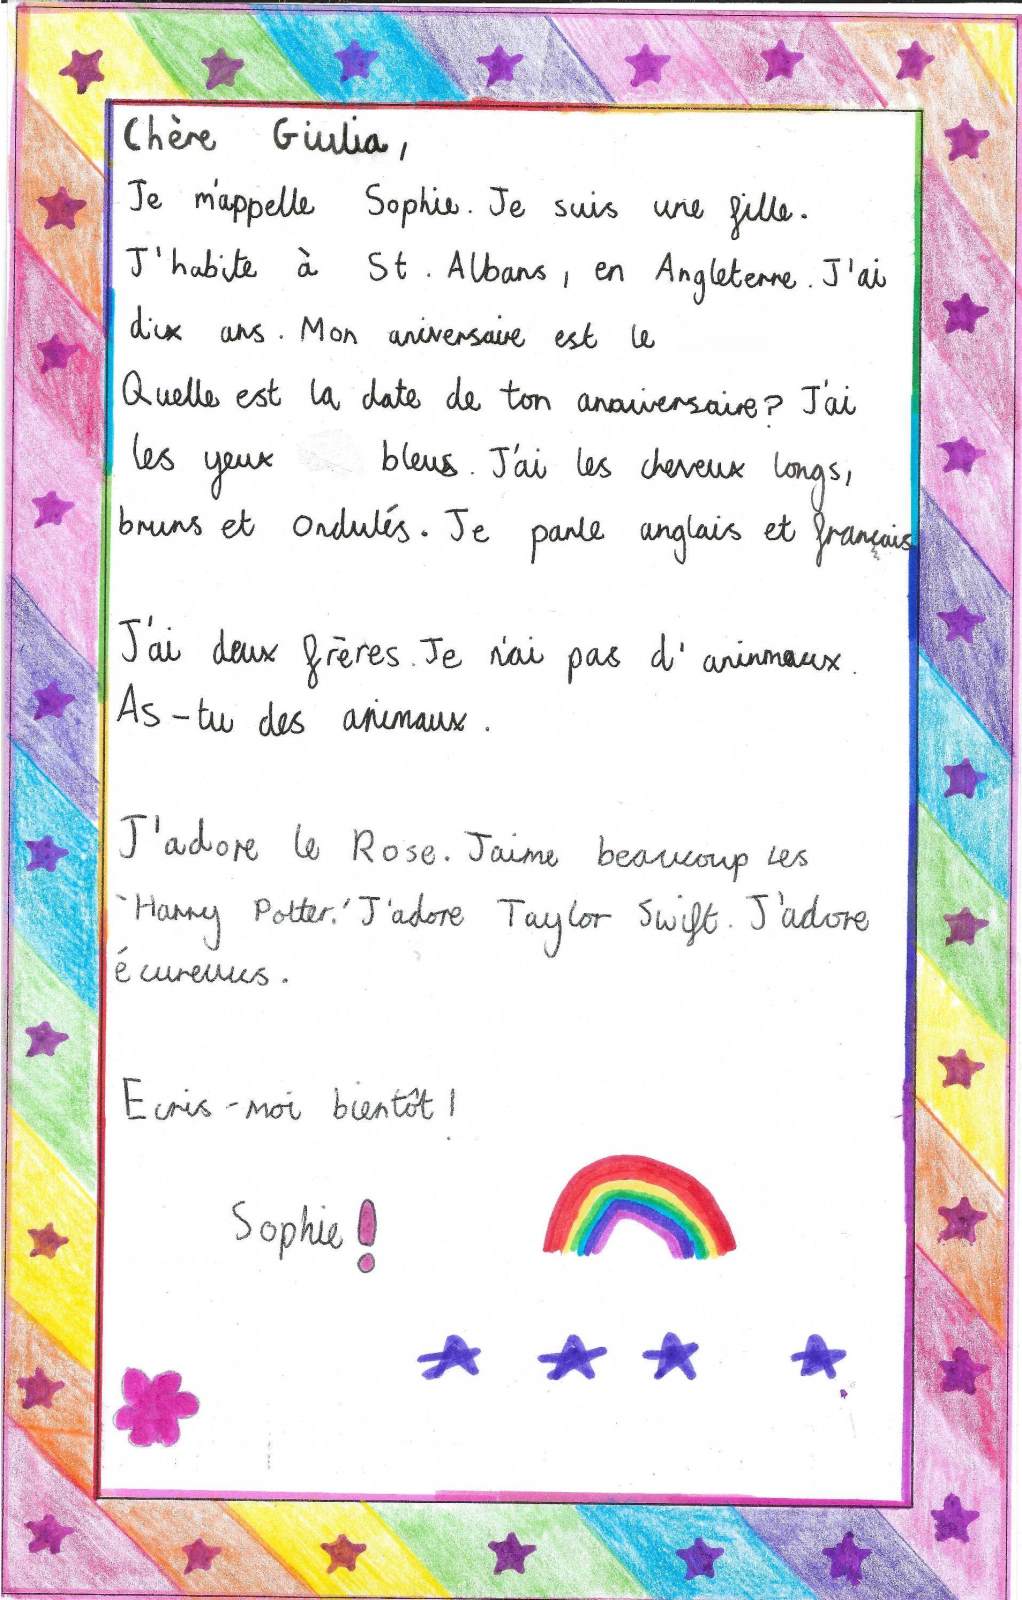 Chère Giulia,
Je m'appelle Sophie. Je suis une fille.
J'habite à St. Albans, en Angleterre. J'ai
dix ans. Mon aniversaire est le
Quelle est la date de ton anniversaire? J'ai
les yeux bleus. J'ai les cheveux longs,
bruns et ondulés. Je parle anglais et français
J'ai deux frères. Je n'ai pas d'aninmaux.
As-tu des animaux.
J'adore le Rose. J'aime beaucoup les
'Harry Potter.' J'adore Taylor Swift. J'adore
écureuus.
Ecris-moi bientôt!
Sophie!